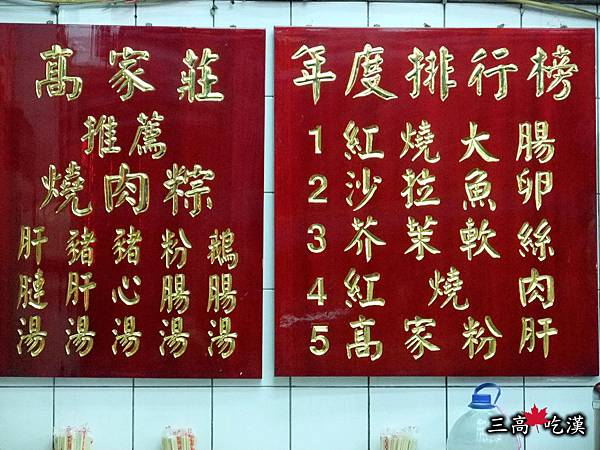 高家莊
推薦
燒肉粽
鵝腸湯
粉腸湯
豬心湯
豬肝湯
肝腱湯
年度排行榜
1 紅燒大腸
2 沙拉魚卵
3 芥茉軟絲
4 紅燒肉
5 高家粉肝
三高吃漢